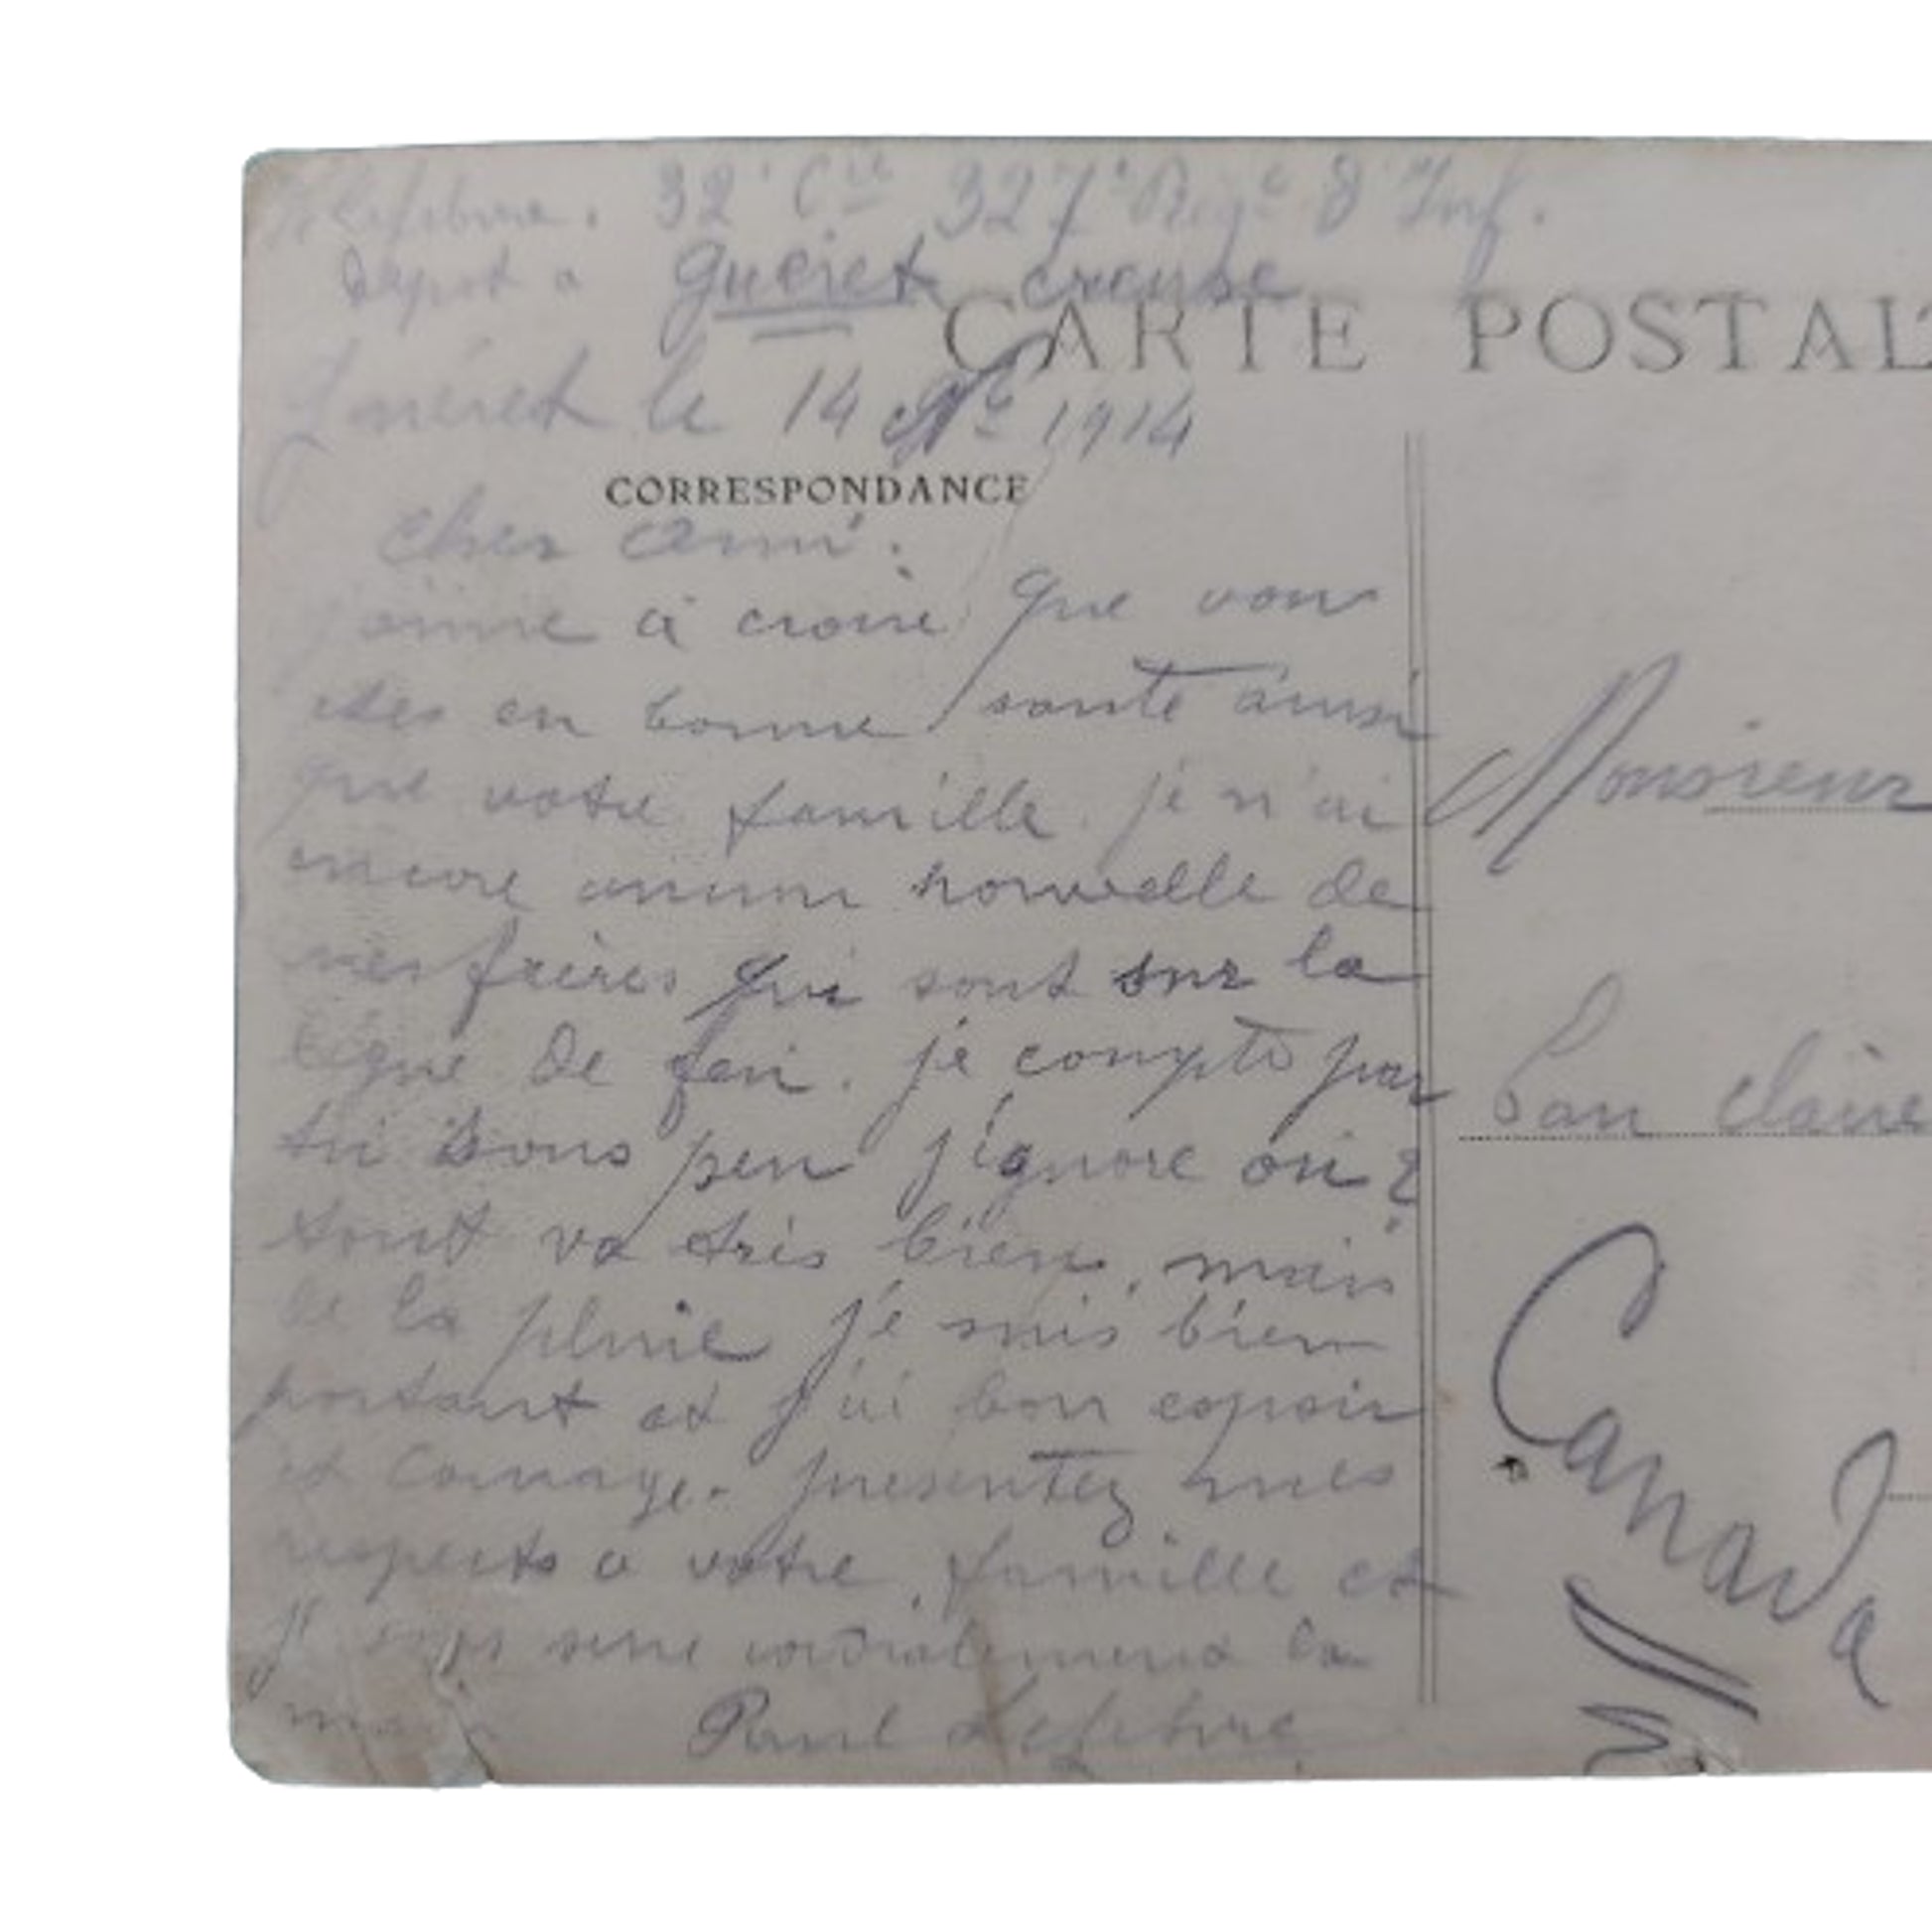 Lefebvre. 32e Cie 327e Regt d'Inf.
Depot a Guéret creuse
CARTE POSTAL
Guéret le 14 1914
CORRESPONDANCE
cher ami.
j'aime à croire que vous
etes en bonne santé ainsi
que votre famille. je n'ai
encore aucune nouvelle de
mes frères qui sont sur la
ligne de feu. je compte par
tir sous peu j'ignore où ?
tout va très bien, mais
de la pluie je suis bien
portant et j'ai bon espoir
et courage. presentez mes
respects a votre famille et
je vous serre cordialement la
main Paul Lefebvre
Monsieur
San claire
Canada